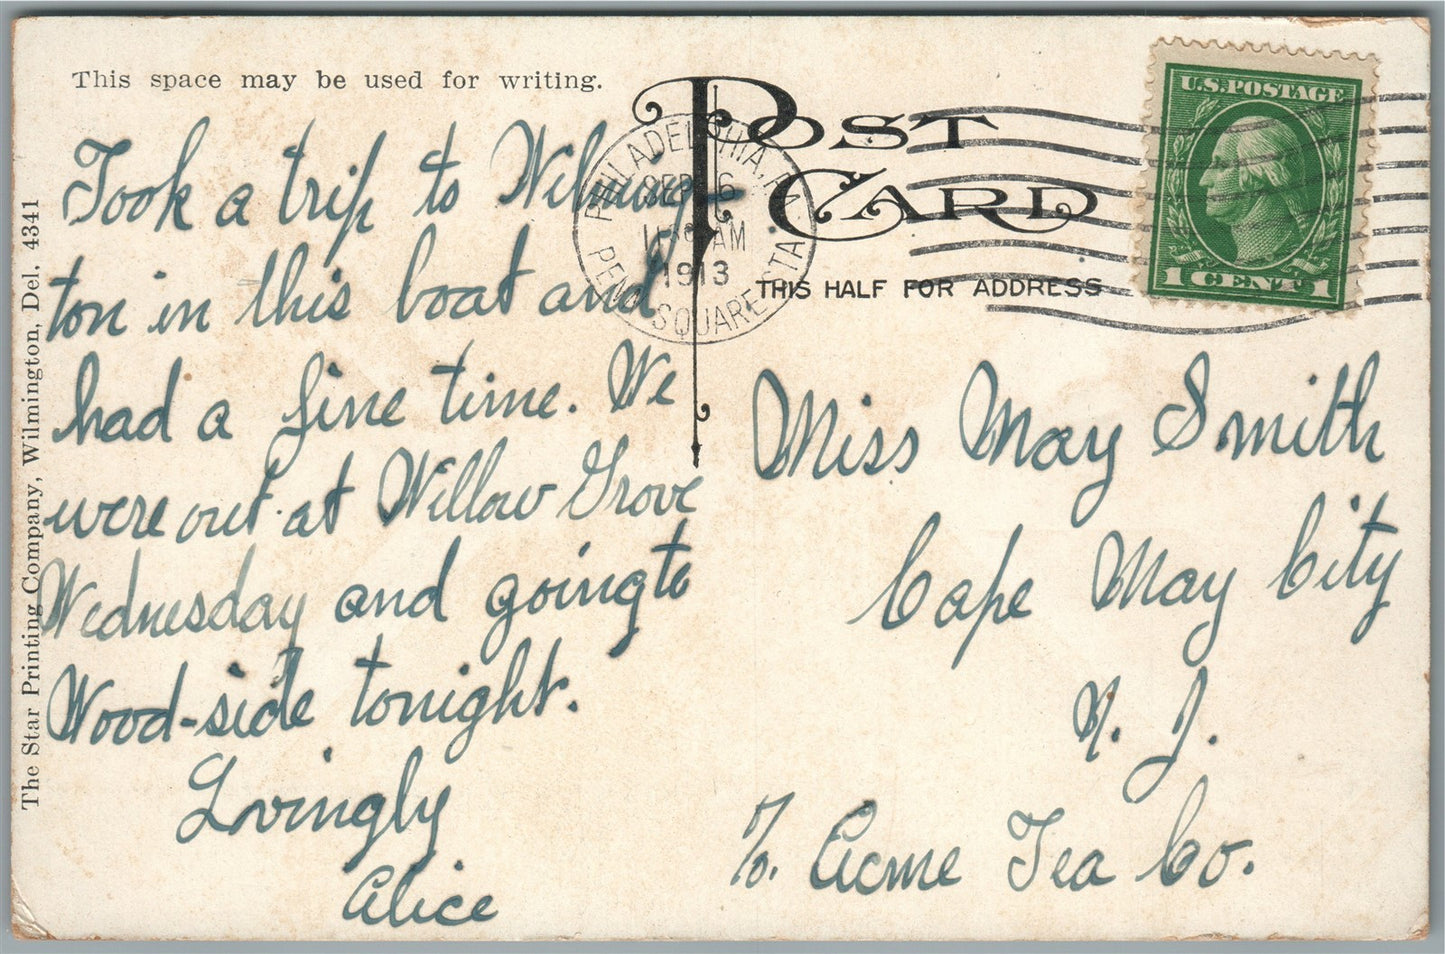 This space may be used for writing.
Took a trip to Wilming-
ton in this boat and
had a fine time. We
were out at Willow Grove
Wednesday and going to
Wood-side tonight.
Lovingly
Alice
The Star Printing Company, Wilmington, Del. 4341
POST CARD
THIS HALF FOR ADDRESS
PHILADELPHIA, PA.
SEP 6
AM
1913
PENN SQUARE STA.
U.S. POSTAGE
1 CENT 1
Miss May Smith
Cape May City
N. J.
℅. Acme Tea Co.